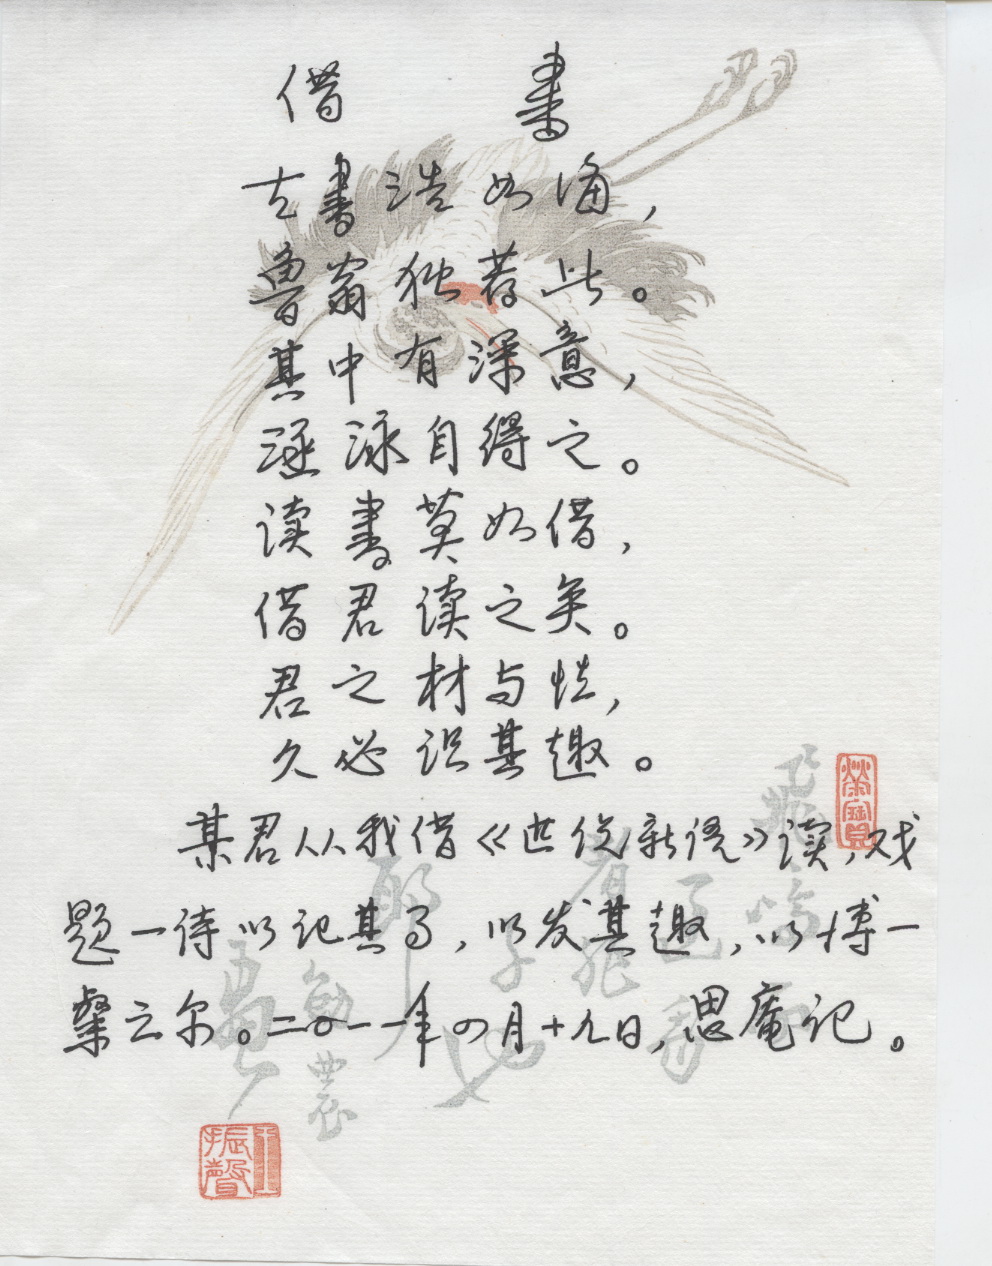 借书
古书浩如海，
鲁翁独荐此。
其中有深意，
涵泳自得之。
读书莫如借，
借君读之矣。
君之材与性，
久必识其趣。
某君从我借《世说新语》读，戏
题一诗以记其事，以发其趣，以博一
粲云尔。二〇一一年四月十九日，思庵记。
荣宝
王振聲